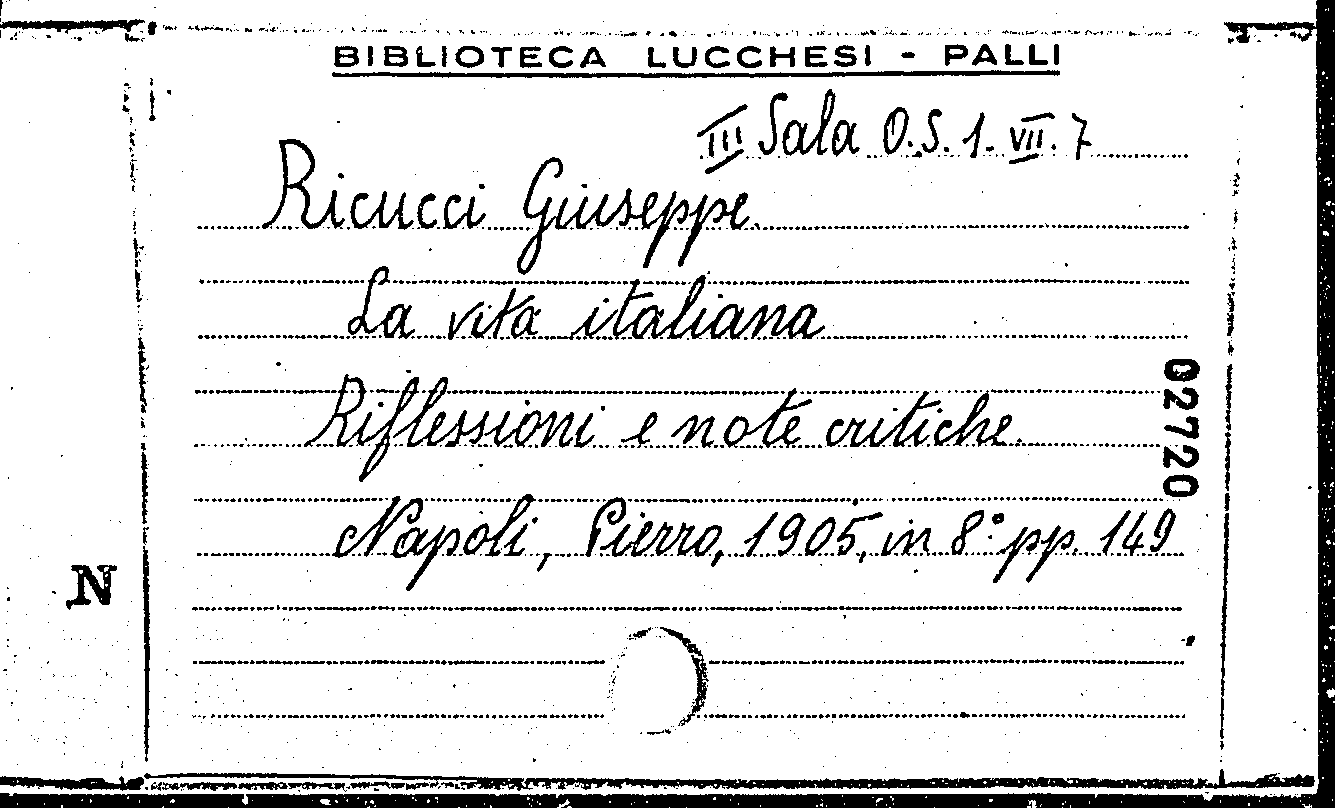 BIBLIOTECA LUCCHESI - PALLI
III Sala O.S. 1. VII. 7
Ricucci Giuseppe.
La vita italiana
Riflessioni e note critiche.
Napoli, Pierro, 1905, in 8° pp. 149
02720
N